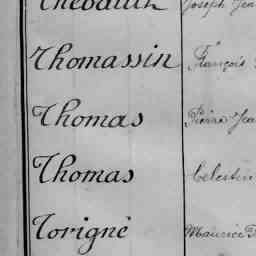 Thébault Joseph Jea
Thomassin François
Thomas Pierre Jea
Thomas Célestin
Torigné Maurice F